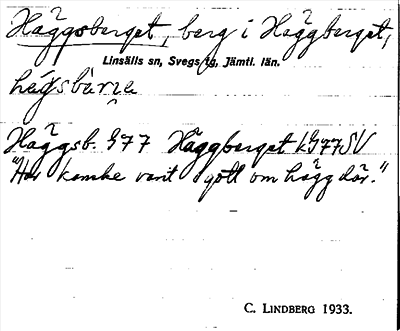 Häggsberget, berg i Häggberget,
Linsälls sn, Svegs tg, Jämtl. län.
hägsbärıe
Häggsb. G77 Häggberget LG77SV
"Har kanske varit gott om hägg där."
C. LINDBERG 1933.